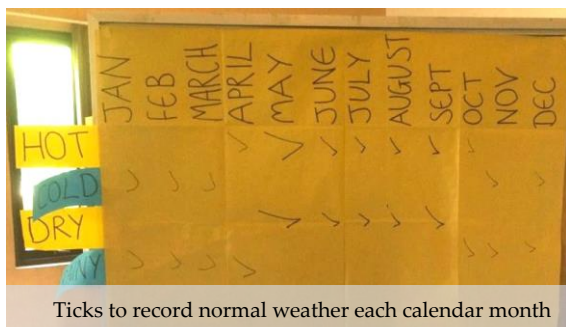 JAN FEB MARCH APRIL MAY JUNE JULY AUGUST SEPT OCT NOV DEC
HOT
COLD
DRY
Ticks to record normal weather each calendar month